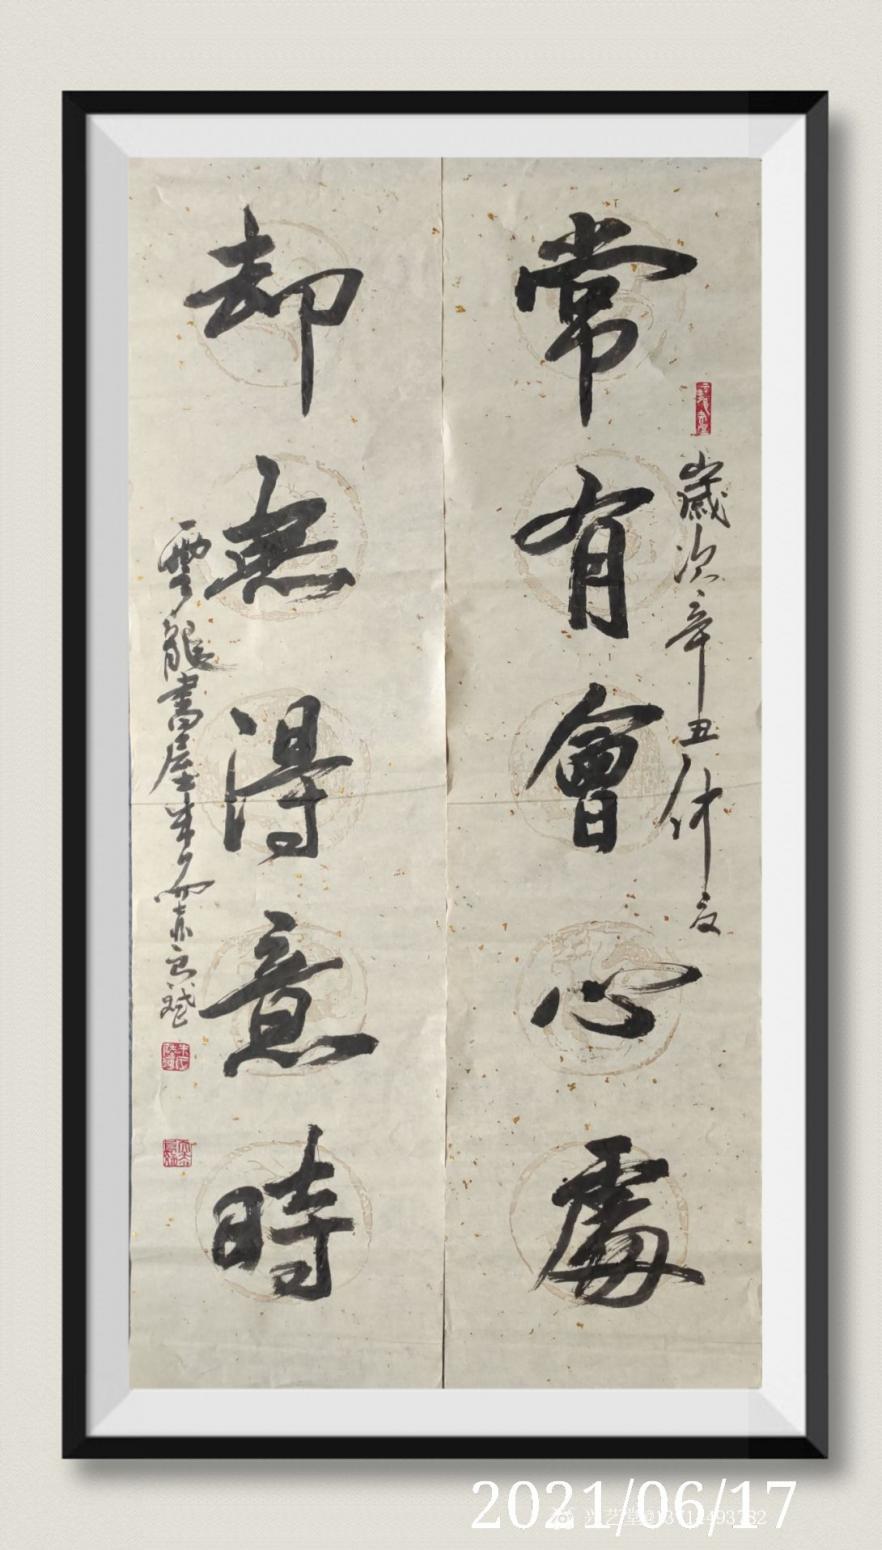 常有會心處
歲次辛丑仲夏
却無得意時
雲龍書屋
2021/06/17